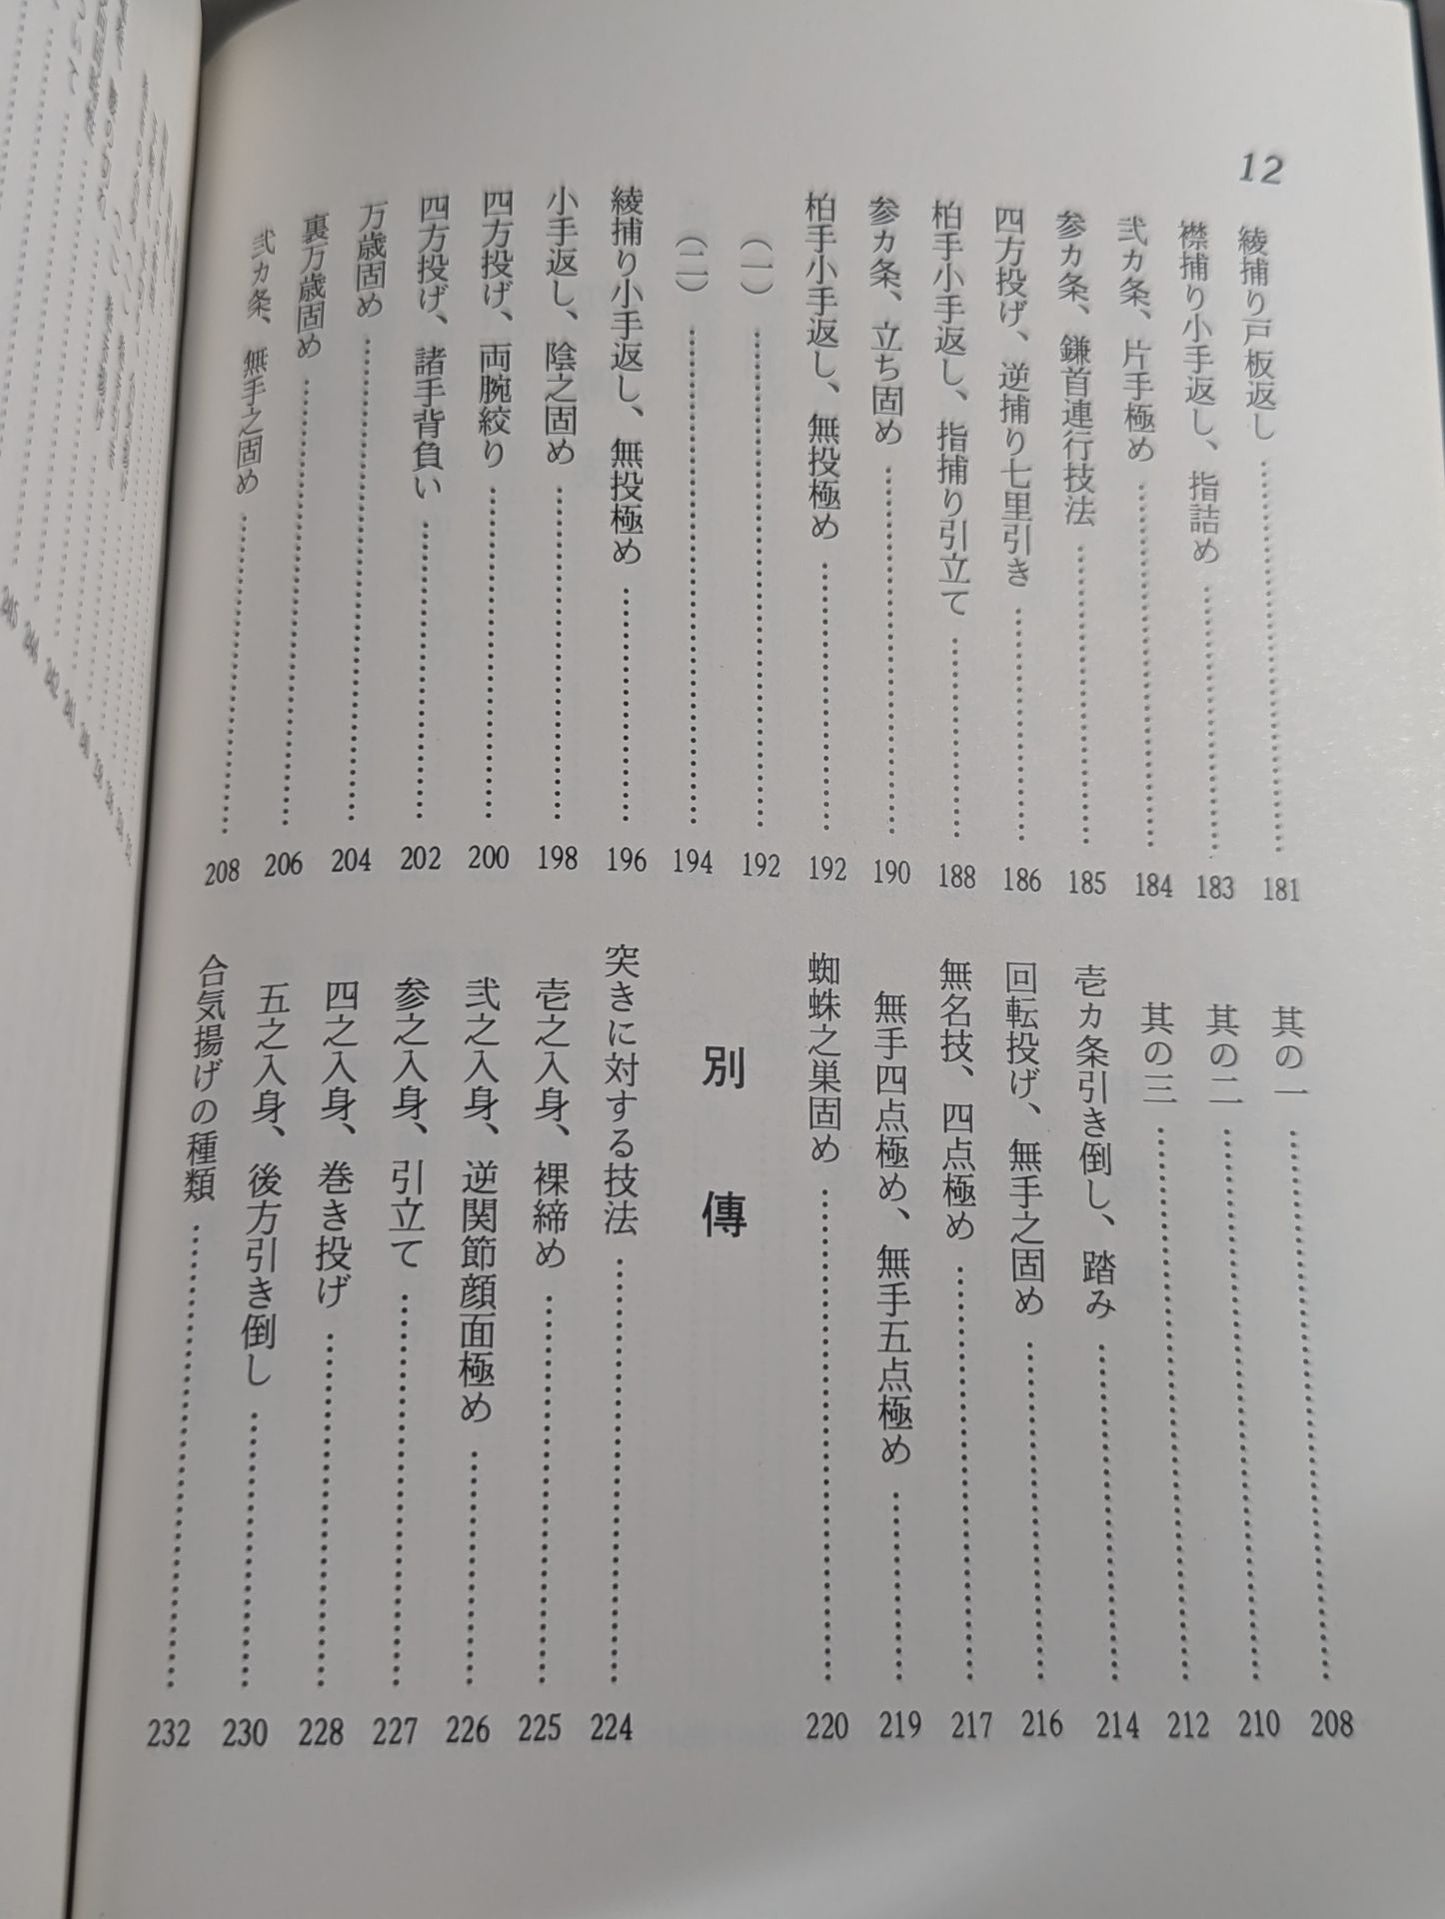 12
綾捕り戸板返し……………181
襟捕り小手返し、指詰め……………183
弐カ条、片手極め……………184
参カ条、鎌首連行技法……………185
四方投げ、逆捕り七里引き……………186
柏手小手返し、指捕り引立て……………188
参カ条、立ち固め……………190
柏手小手返し、無投極め……………192
（一）……………192
（二）……………194
綾捕り小手返し、無投極め……………196
小手返し、陰之固め……………198
四方投げ、両腕絞り……………200
四方投げ、諸手背負い……………202
万歳固め……………204
裏万歳固め……………206
弐カ条、無手之固め……………208
其の一……………208
其の二……………210
其の三……………212
壱カ条引き倒し、踏み……………214
回転投げ、無手之固め……………216
無名技、四点極め……………217
無手四点極め、無手五点極め……………219
蜘蛛之巣固め……………220
別傳
突きに対する技法……………224
壱之入身、裸締め……………225
弐之入身、逆関節顔面極め……………226
参之入身、引立て……………227
四之入身、巻き投げ……………228
五之入身、後方引き倒し……………230
合気揚げの種類……………232